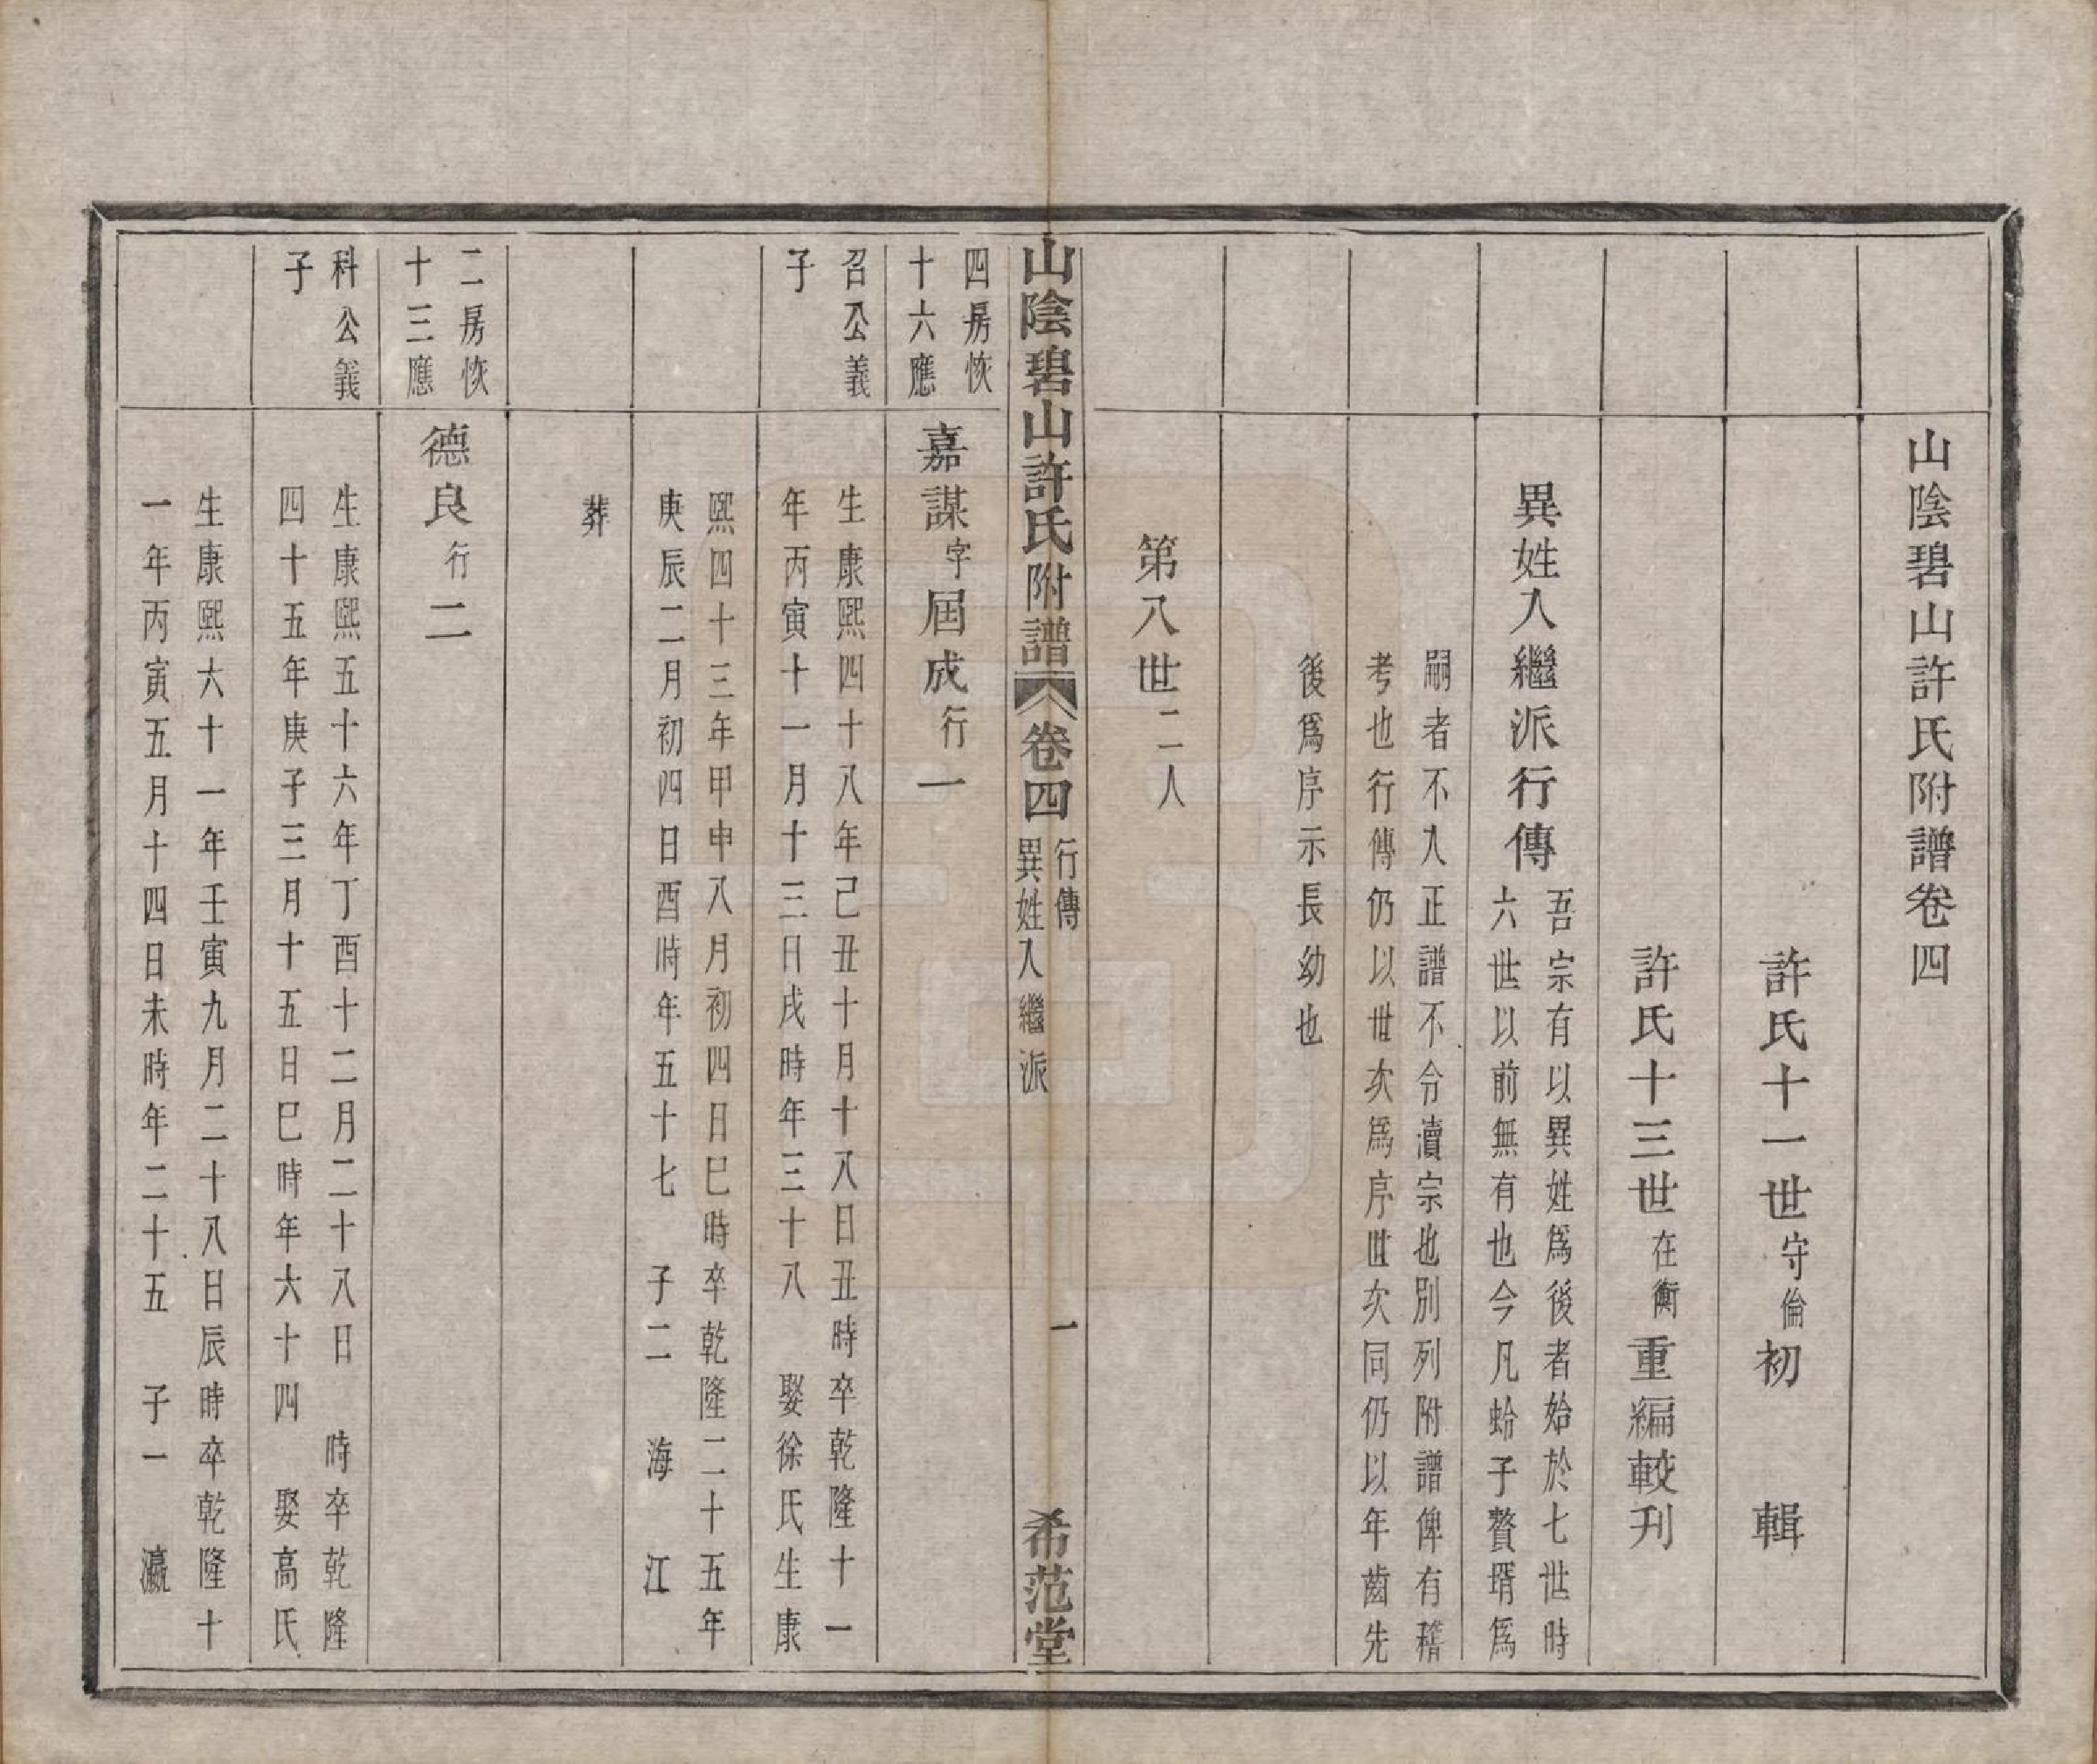 山陰碧山許氏附譜卷四
許氏十一世守倫初輯
許氏十三世在衡重編較刋
異姓入繼派行傳
吾宗有以異姓爲後者始於七世時
六世以前無有也今凡蛤子贅壻爲
嗣者不入正譜不令瀆宗也別列附譜俾有稽
考也行傳仍以世次爲序世次同仍以年齒先
後爲序示長幼也
第八世二人
山陰碧山許氏附譜 卷四 行傳 異姓入繼派 一 希范堂
四房恢
十六應
召公義
子
嘉謀字屆成行一
生康熙四十八年己丑十月十八日丑時卒乾隆十一
年丙寅十一月十三日戌時年三十八 娶徐氏生康
熙四十三年甲申八月初四日巳時卒乾隆二十五年
庚辰二月初四日酉時年五十七 子二 海 江
葬
二房恢
十三應
科公義
子
德良行二
生康熙五十六年丁酉十二月二十八日 時卒乾隆
四十五年庚子三月十五日巳時年六十四 娶高氏
生康熙六十一年壬寅九月二十八日辰時卒乾隆十
一年丙寅五月十四日未時年二十五 子一 瀛